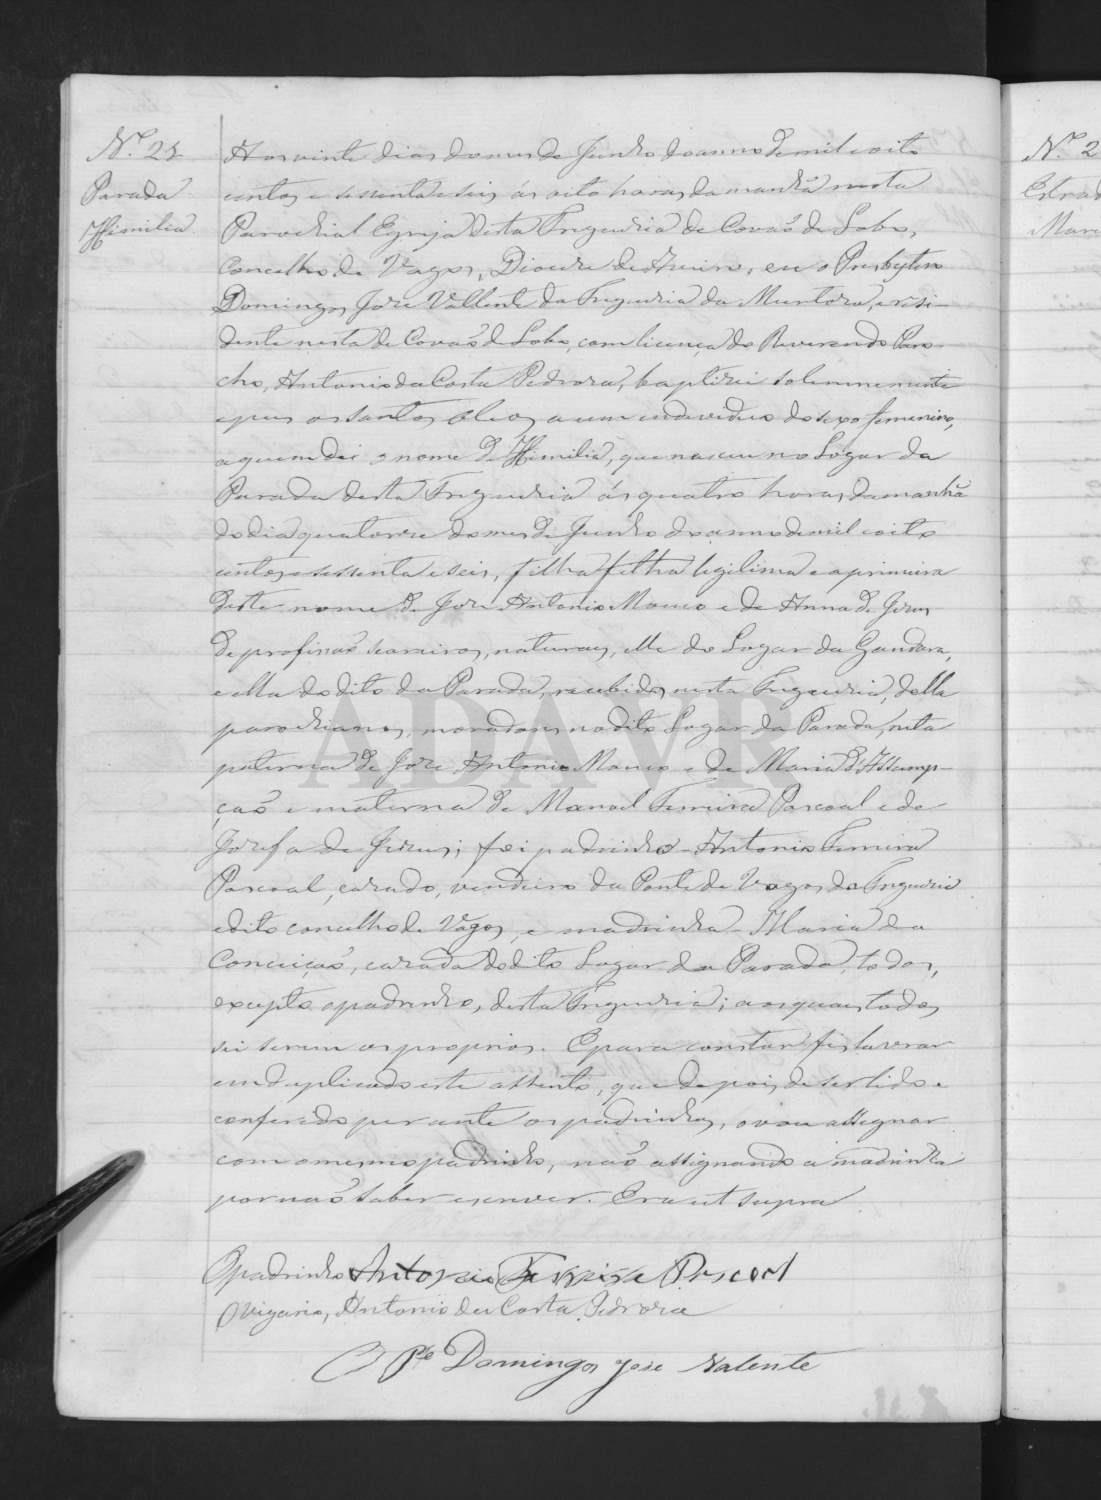 N.º 25
Parada
Hemilia
Aos vinte dias do mes de Junho do anno de mil e oito
centos e sessenta e seis ás oito horas da manhã nesta
Parochial Egreja desta Freguezia de Covaõ de Lobo,
Concelho de Vagos, Diocese de Aveiro, eu o Presbytero
Domingos Jose Vallente da Freguezia da Murtoza, e resi-
dente nesta de Covaõ de Lobo, com licença do Reverendo Paro-
cho, Antonio da Costa Pedroza, baptizei solemnemente
e pus os santos oleos a um individuo do sexo femenino,
a quem dei o nome de Hemilia, que nasceu no Logar da
Parada desta Freguezia ás quatro horas da manhã
do dia quatorze do mes de Junho do anno de mil e oito
centos e sessenta e seis, filha filha legitima e a primeira
deste nome de Joze Antonio Mouco e de Anna de Jesus
de profissaõ seareiros, naturaes, elle do Logar da Gandara,
e ella do dito da Parada, recebidos nesta Freguezia, della
parochianos, moradores no dito Logar da Parada, neta
paterna de Joze Antonio Mouco e de Maria d'Assump-
çaõ e materna de Manoel Ferreira Pascoal e de
Jozefa de Jezus; foi padrinho - Antonio Ferreira
Pascoal, cazado, vendeiro da Ponte de Vagos da Freguezia
e dito concelho de Vagos, e madrinha - Maria da
Conceiçaõ, cazada do dito Logar da Parada, todos,
excepto o padrinho, desta Freguezia; aos quaes todos
sei serem os proprios. E para constar fis lavrar
em duplicado este assento, que depois de ser lido e
conferido perante os padrinhos, o vou assignar
com o mesmo padrinho, naõ assignando a madrinha
por naõ saber escrever. Era ut supra
O padrinho Antonio Ferreira Pascoal
O Vigario, Antonio da Costa Pedroza
O P.e Domingos Jose Valente
ADAVR
N.º 2
Estrad
Mari